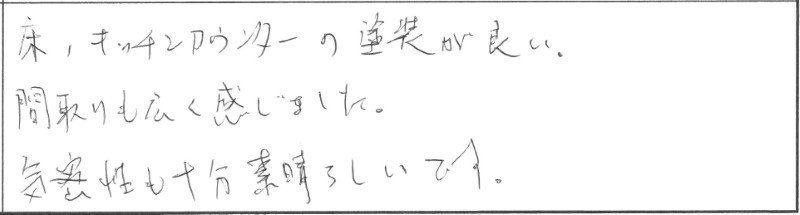 床，キッチンカウンターの塗装が良い。
間取りも広く感じました。
気密性も十分素晴らしいです。